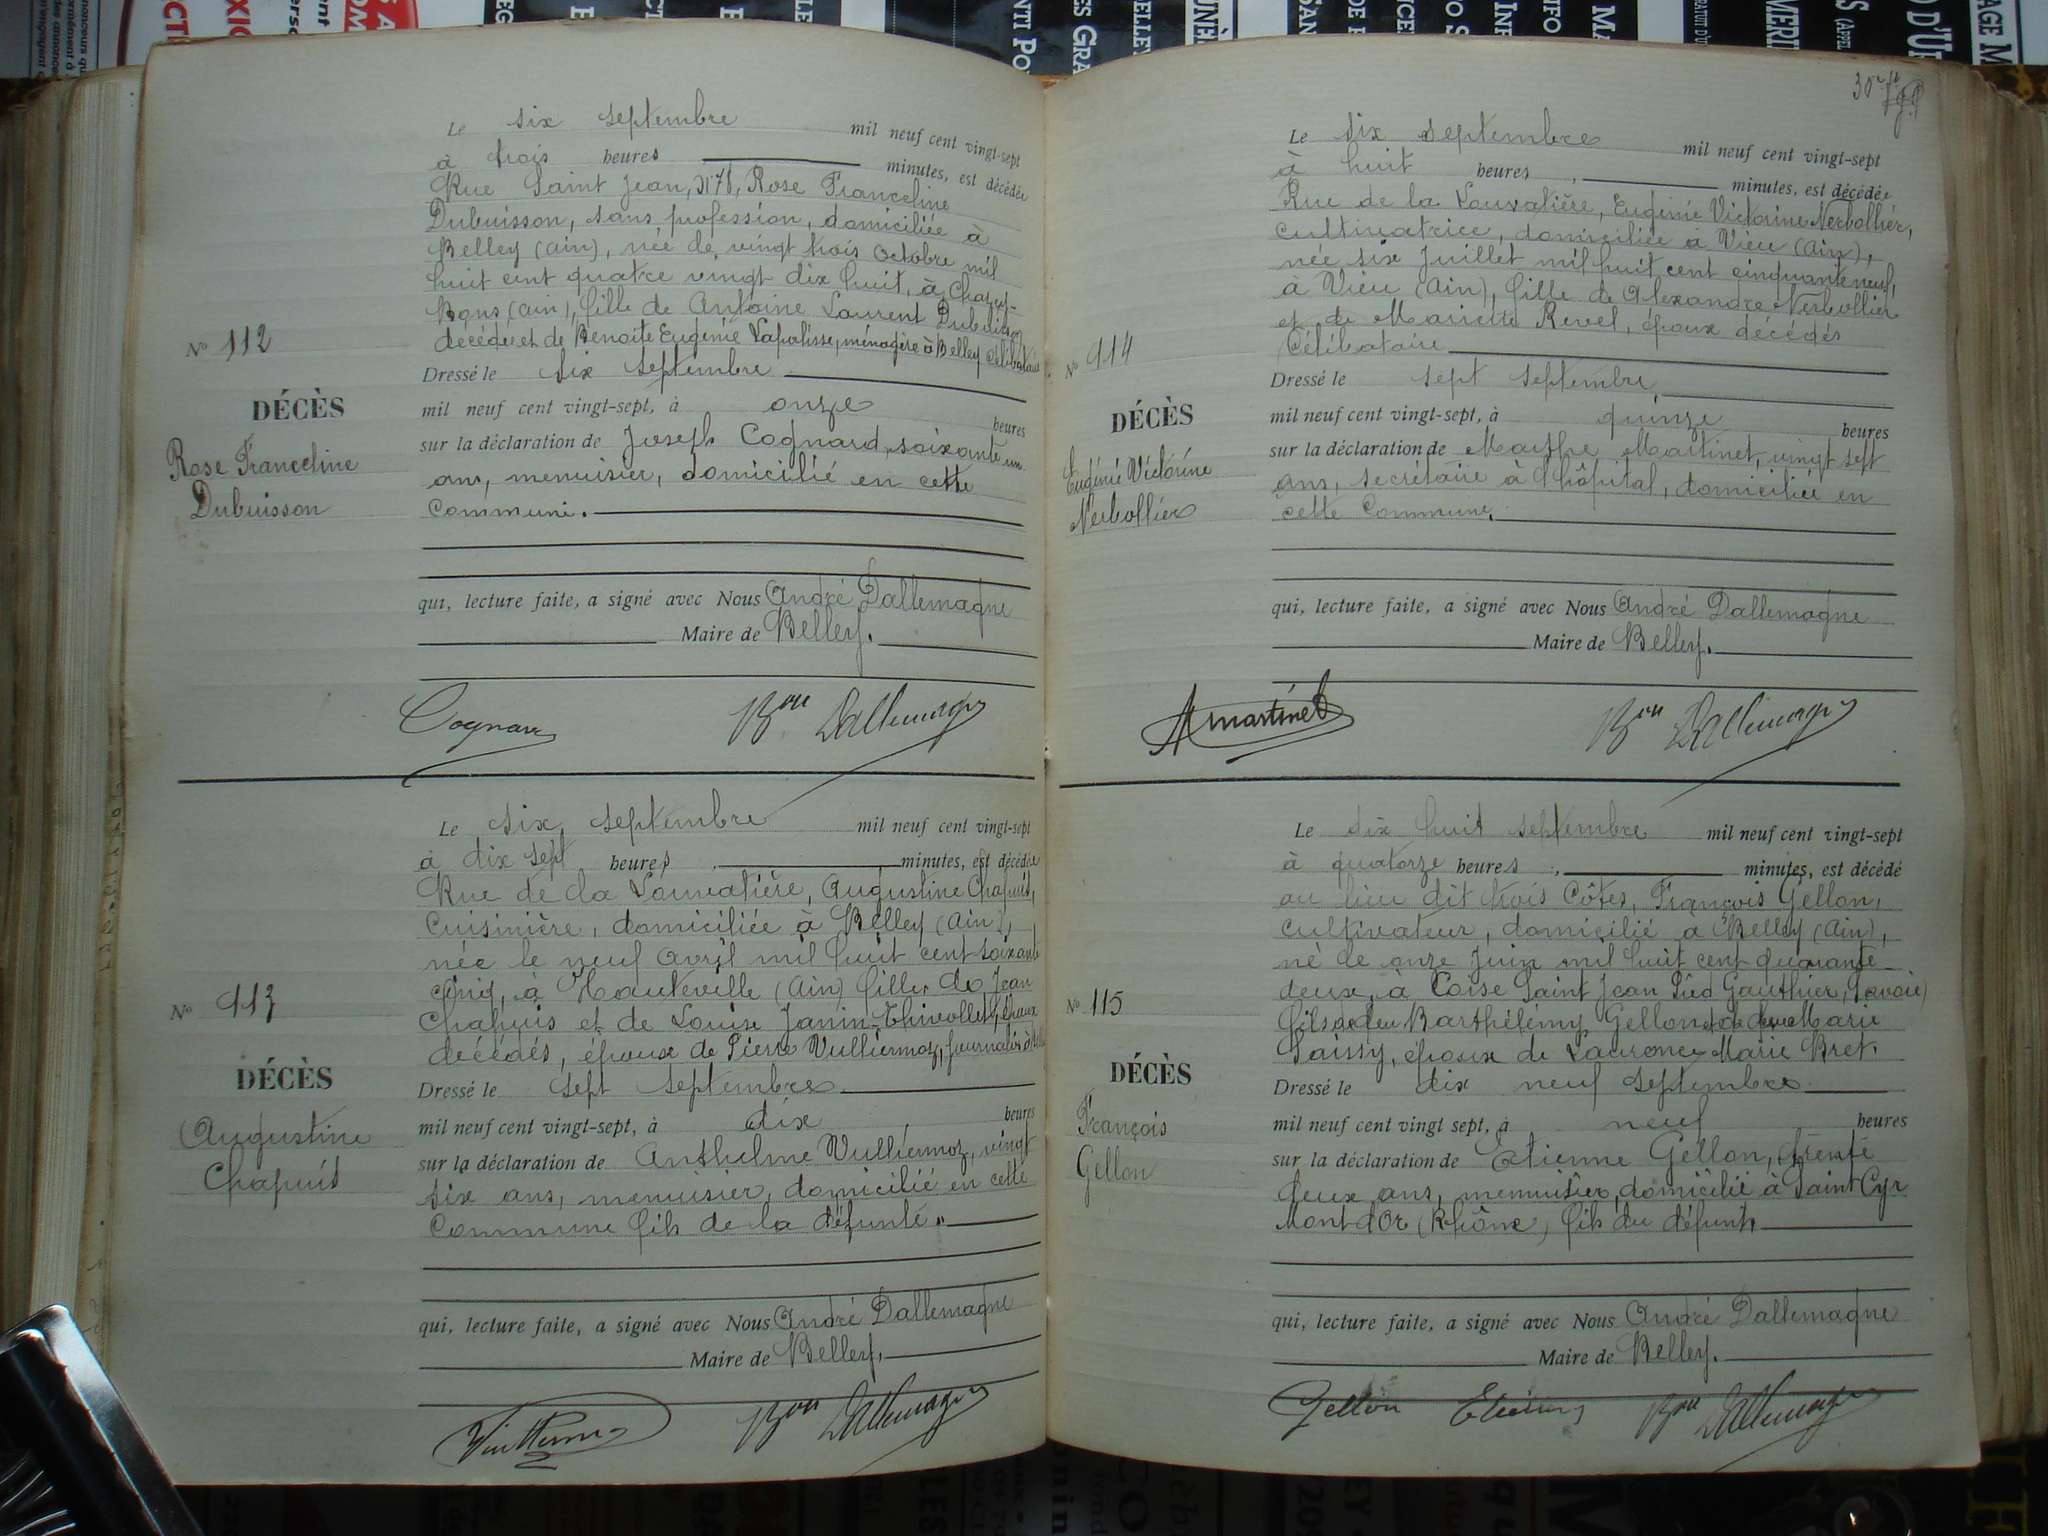 Le six septembre mil neuf cent vingt-sept
à trois heures minutes, est décédée
Rue Saint Jean, Rose Franceline
Dubuisson, sans profession, domiciliée à
Belley (Ain), née le vingt trois Octobre mil
huit cent quatre vingt dix huit, à Chazey-
Bons (Ain), fille de Antoine Laurent Dubuisson
décédé et de Benoîte Eugénie Lapalisse, ménagère à Belley Célibataire
N° 112
Dressé le six septembre
DÉCÈS
mil neuf cent vingt-sept, à onze heures
Rose Franceline
Dubuisson
sur la déclaration de Joseph Cognard, soixante un
ans, menuisier, domicilié en cette
Commune.
qui, lecture faite, a signé avec Nous André Dallemagne
Maire de Belley.
Cognard Bon Dallemagne
Le six septembre mil neuf cent vingt-sept
à dix sept heures minutes, est décédée
Rue de la Louvatière, Augustine Chapuis,
Cuisinière, domiciliée à Belley (Ain),
née le neuf Avril mil huit cent soixante
cinq, à Hauteville (Ain) fille de Jean
Chapuis et de Louise Janin-Thivollet, époux
décédés, épouse de Pierre Vulliermoz, journalier à
N° 113
Dressé le sept septembre
DÉCÈS
mil neuf cent vingt-sept, à dix heures
Augustine
Chapuis
sur la déclaration de Anthelme Vulliermoz, vingt
six ans, menuisier, domicilié en cette
Commune fils de la défunte.
qui, lecture faite, a signé avec Nous André Dallemagne
Maire de Belley.
Vulliermoz Bon Dallemagne
30
Le six septembre mil neuf cent vingt-sept
à huit heures, minutes, est décédée
Rue de la Louvatière, Eugénie Victorine Nerbollier,
cultivatrice, domiciliée à Vieu (Ain),
née six Juillet mil huit cent cinquante neuf,
à Vieu (Ain), fille de Alexandre Nerbollier
et de Mariette Revel, époux décédés
Célibataire
N° 114
Dressé le sept septembre
DÉCÈS
mil neuf cent vingt-sept, à quinze heures
Eugénie Victorine
Nerbollier
sur la déclaration de Marthe Martinet, vingt sept
ans, secrétaire à l'hôpital, domiciliée en
cette Commune.
qui, lecture faite, a signé avec Nous André Dallemagne
Maire de Belley.
Martinet Bon Dallemagne
Le dix huit septembre mil neuf cent vingt-sept
à quatorze heures, minutes, est décédé
au lieu dit trois Côtes, François Gellon,
Cultivateur, domicilié à Belley (Ain),
né le onze Juin mil huit cent quarante
deux, à Coise Saint Jean Pied Gauthier, (Savoie)
fils de feu Barthélémy Gellon et de feue Marie
Saissy, époux de Laurence Marie Bret.
N° 115
Dressé le dix neuf septembre
DÉCÈS
mil neuf cent vingt sept, à neuf heures
François
Gellon
sur la déclaration de Etienne Gellon, trente
deux ans, menuisier, domicilié à Saint Cyr
Mont d'Or (Rhône), fils du défunt,
qui, lecture faite, a signé avec Nous André Dallemagne
Maire de Belley.
Gellon Etienne Bon Dallemagne